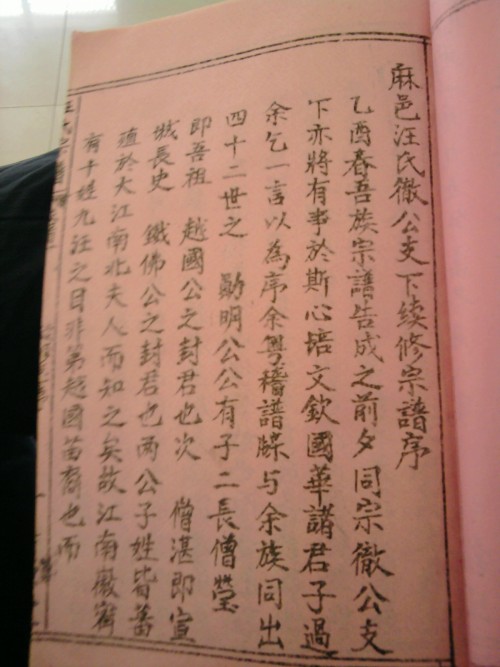 麻邑汪氏徹公支下续修宗譜序
乙酉春吾族宗譜告成之前夕同宗徹公支
下亦將有事於斯心培文欽國華諸君子過
余乞一言以為序余粤稽譜牒与余族同出
四十二世之 勛明公公有子二長僧瑩
即吾祖 越國公之封君也次 僧湛即宣
城長史 鐵佛公之封君也两公子姓皆蕃
殖於大江南北夫人而知之矣故江南徽寧
有十姓九汪之目非第越國苗裔也而